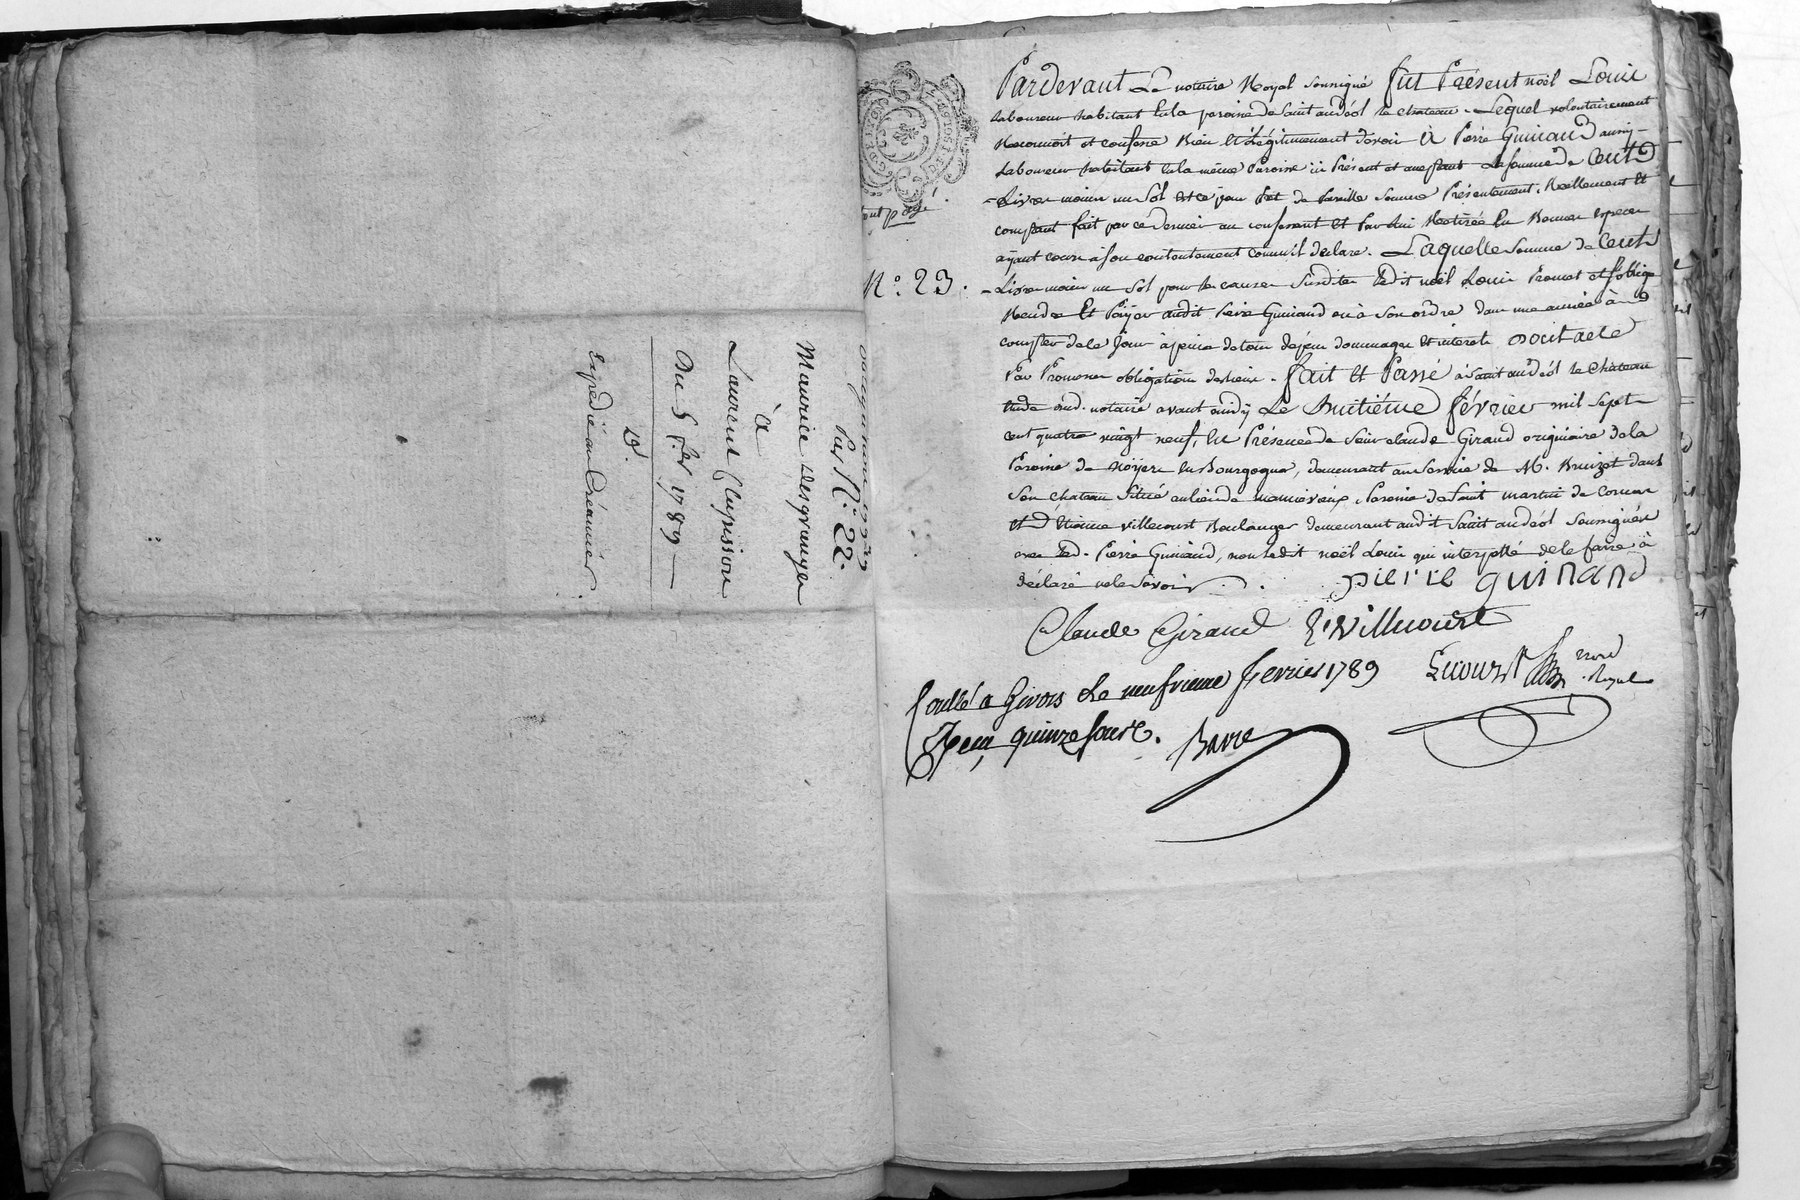 Par N.° 22.
Maurice desgranges
à
Laurent Clapisson
Du 5 f.er 1789
Expédiée au Créancier
N.° 23.
Pardevant Le notaire Royal soussigné fut Présent noël Louis
Laboureur habitant En la paroisse de Saint andéol le chateau. Lequel volontairement
Reconnoit et confesse Bien Et Légitimement devoir à Pierre Guinand aussy
Laboureur habitant En la même Paroisse ici Présent et acceptant La somme de Cent
Livres moins un Sol et ce pour Prêt de Pareille somme Présentement. Réellement Et
comptant fait par ce dernier au confessant Et Par lui Retirée En Bonnes espèces
ayant cours à son contentement comm'il déclare. Laquelle somme de Cent
Livres moins un Sol pour les causes Susdites Ledit noël Louis Promet et s'oblige
Rendre Et Payer audit Pierre Guinand ou à son ordre dans une année à
compter de ce Jour à peine de tous dépens dommages Et intérets
Par Promesses obligations. fait Et Passé à Saint andéol le Chateau
Etude dud. notaire avant midy Le huitième février mil sept
cent quatre vingt neuf, En Présence de Sieur claude Giraud originaire de la
Paroisse de noyers En Bourgogne, demeurant au service de M. Bruizet dans
Son chateau situé au lieu de manevieux, Paroisse de Saint martin de Cornas
Et D'Etienne villecourt Boulanger demeurant audit Saint andéol soussignés
avec led. Pierre Guinand, non ledit noël Louis qui interpellé de le faire à
déclaré ne le savoir.
pierre guinand
Claude Giraud E. Villecourt
Contrôlé a Givors Le neufvieme fevrier 1789
Reçu quinze sous. Barre
Royal